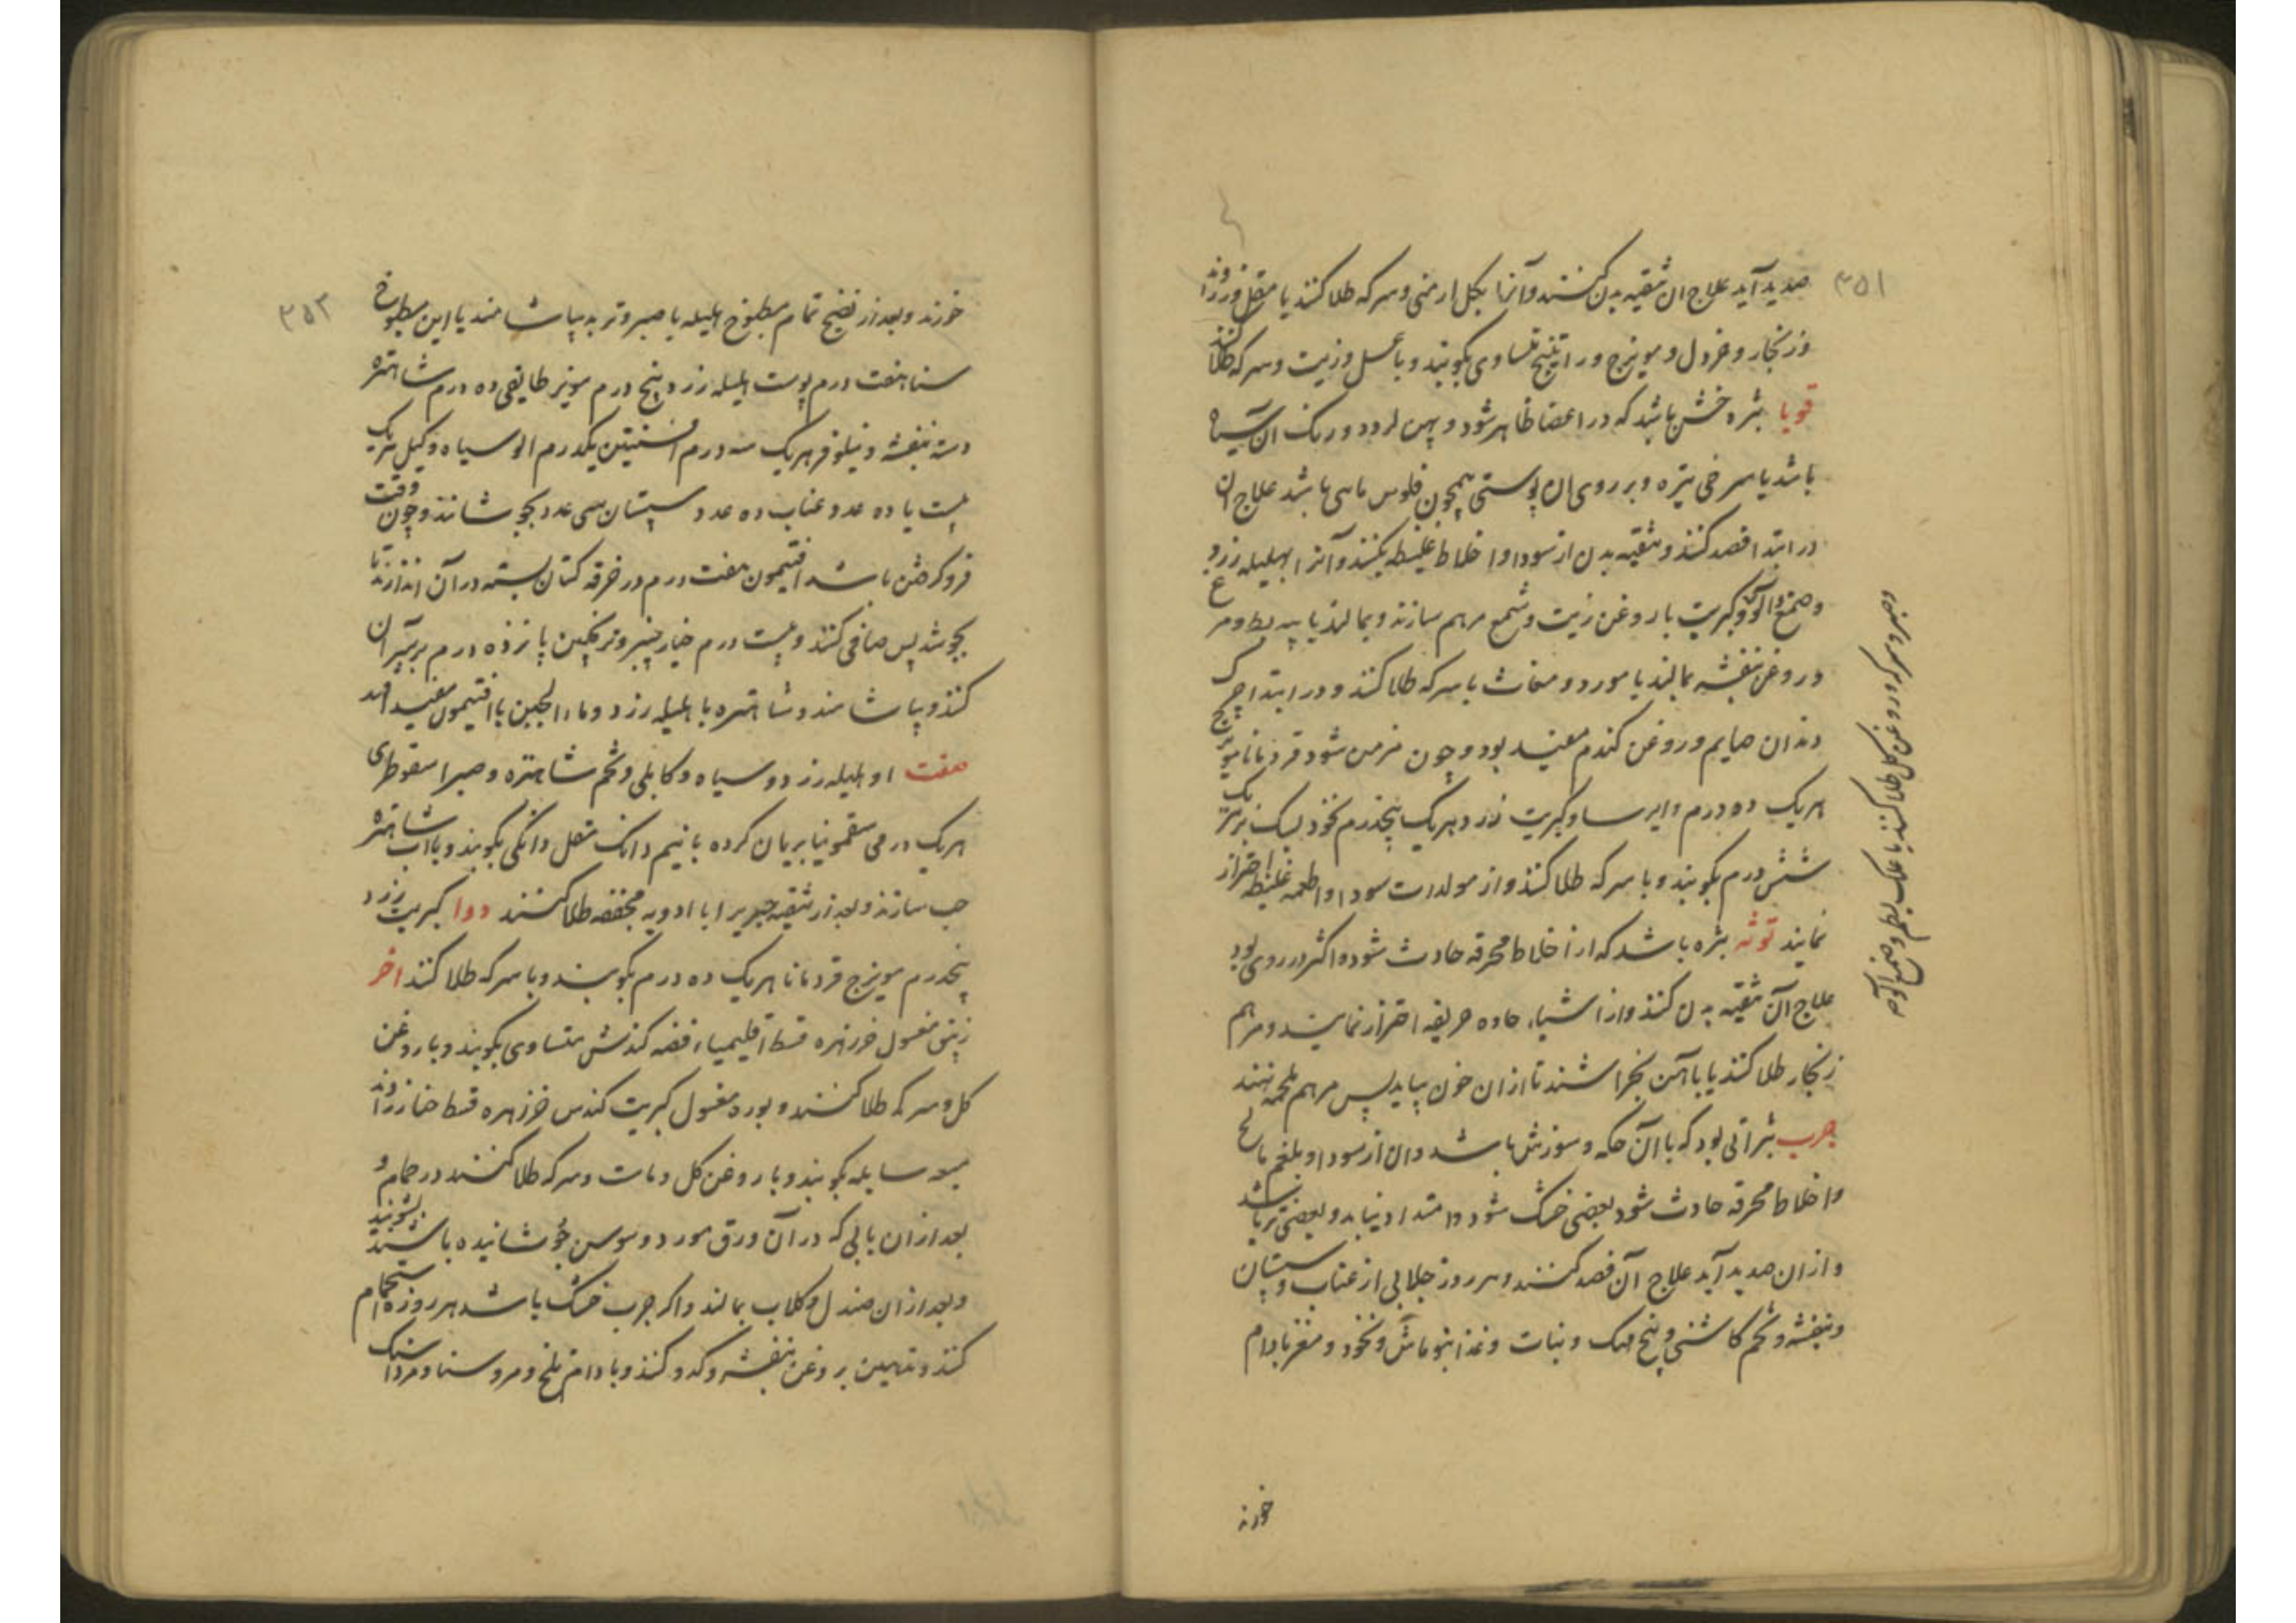 ۳۵۱
صدید آید علاج ان تنقیه بدن کنند و آنرا بکل ارمنی و سرکه طلا کنند یا مقل و زراوند
و زنکار و خردل و مویزج و راتینج متساوی بکوبند و با عسل و زیت و سرکه طلا کنند
قوبا بثره خشن باشد که در اعضا ظاهر شود و پهن کردد و رنک ان سیاه
باشد یا سرخی تیره و بر روی ان پوستی همچون فلوس ماهی باشد علاج ان
در ابتدا فصد کنند و تنقیه بدن از سودا و اخلاط غلیظه بکنند و آنرا بهلیله زرد
و صمغ آلو و کبریت با روغن زیت و شمع مرهم سازند و بمالند یا پیه بط و مرغ
و روغن بنفشه بمالند یا مورد و مغاث با سرکه طلا کنند و در ابتدا چرک
دندان صایم و روغن کندم مفید بود و چون مزمن شود قردمانا مویزج
هریک ده درم و ایرسا و کبریت زرد هریک پنجدرم نخود بزرک
شش درم بکوبند و با سرکه طلا کنند و از مولدات سودا و اطعمه غلیظه احتراز
نمایند توثه بثره باشد که از اخلاط محرقه حادث شود و اکثر در روی بود
علاج آن تنقیه بدن کنند و از اشیاء حاده حریفه احتراز نمایند و مرهم
زنکار طلا کنند یا باآهن بخراشند تا ازان خون بیاید پس مرهم ملحمه نهند
جرب بثراتی بود که باآن حکه و سوزش باشد و ان از سودا و بلغم مالح
و اخلاط محرقه حادث شود بعضی خشک شود و امتداد نیابد و بعضی تر باشد
و ازان صدید آید علاج آن فصد کنند و هر روز جلابی از عناب و سپستان
و بنفشه و تخم کاسنی و بیخ مهک و نبات و غذا بنوماش و نخود و مغز بادام
و صبر و سرکه و روغن کل طلا کنند یا علک بطم و صمغ آلو
خورند
۳۵۲
خورند و بعد از نضج تمام مطبوخ هلیله یا صبر و تربد بیاشامند یا این مطبوخ
سنا هفت درم پوست هلیله زرد پنج درم مویز طایفی ده درم شاهتره
دسته بنفشه و نیلوفر هریک سه درم افسنتین یکدرم الو سیاه و کیل هریک
بیست یا ده عدد عناب ده عدد سپستان سی عدد بجوشانند و چون وقت
فرو کرفتن باشد افتیمون هفت درم در خرقه کتان بسته در آن اندازند تا
بجوشد پس صافی کنند و بیست درم خیارچنبر و ترنجبین پانزده درم بر سر آن
کنند و بیاشامند و شاهتره با هلیله زرد و ماء الجبن با افتیمون مفید اید
صفت او هلیله زرد و سیاه و کابلی و تخم شاهتره و صبر اسقوطری
هریک درمی سقمونیا بریان کرده با نیم دانک مقل دانکی بکوبند و با اب شاهتره
حب سازند و بعد از تنقیه جرب را با ادویه مجففه طلا کنند دوا کبریت زرد
پنجدرم مویزج قردمانا هریک ده درم بکوبند و با سرکه طلا کنند اخر
زیبق مغسول خرزهره قسط اقلیمیاء فضه کندش متساوی بکوبند و با روغن
کل و سرکه طلا کنند و بوره مغسول کبریت کندس خرزهره قسط زراوند
میعه سایله بکوبند و با روغن کل و ماست و سرکه طلا کنند در حمام و
بعد ازان بابی که در آن ورق مورد و سوسن جوشانیده باشند بشویند
و بعد ازان صندل و کلاب بمالند و اکر جرب خشک باشد هر روزه استحمام
کنند و تدهین بروغن بنفشه و کدو کنند و بادام تلخ و مر و سنا و مرداسنک